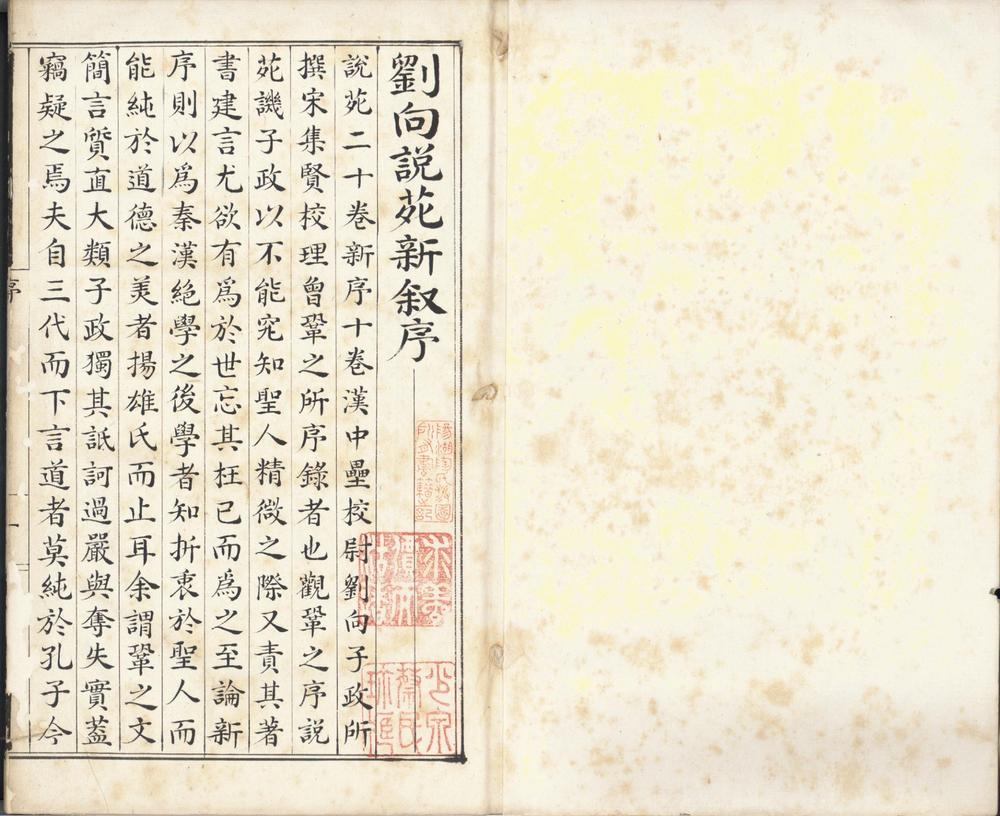 劉向說苑新叙序
說苑二十卷新序十卷漢中壘校尉劉向子政所
撰宋集賢校理曾鞏之所序錄者也觀鞏之序說
苑譏子政以不能究知聖人精微之際又責其著
書建言尤欲有爲於世忘其枉已而爲之至論新
序則以爲秦漢絕學之後學者知折衷於聖人而
能純於道德之美者揚雄氏而止耳余謂鞏之文
簡言質直大類子政獨其詆訶過嚴與奪失實蓋
竊疑之焉夫自三代而下言道者莫純於孔子今
序
一